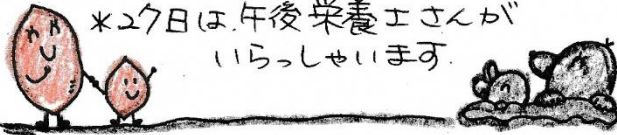 *27日は、午後栄養士さんが
いらっしゃいます.